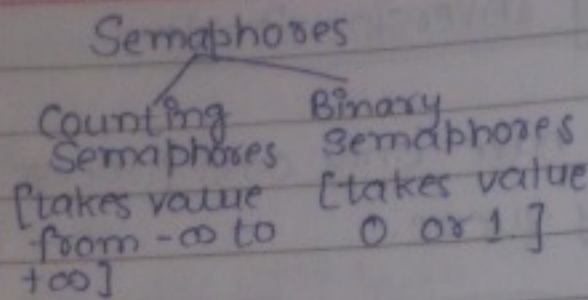 Semaphores
Counting
Semaphores
[takes value
from -∞ to
+∞]
Binary
semaphores
[takes value
0 or 1]